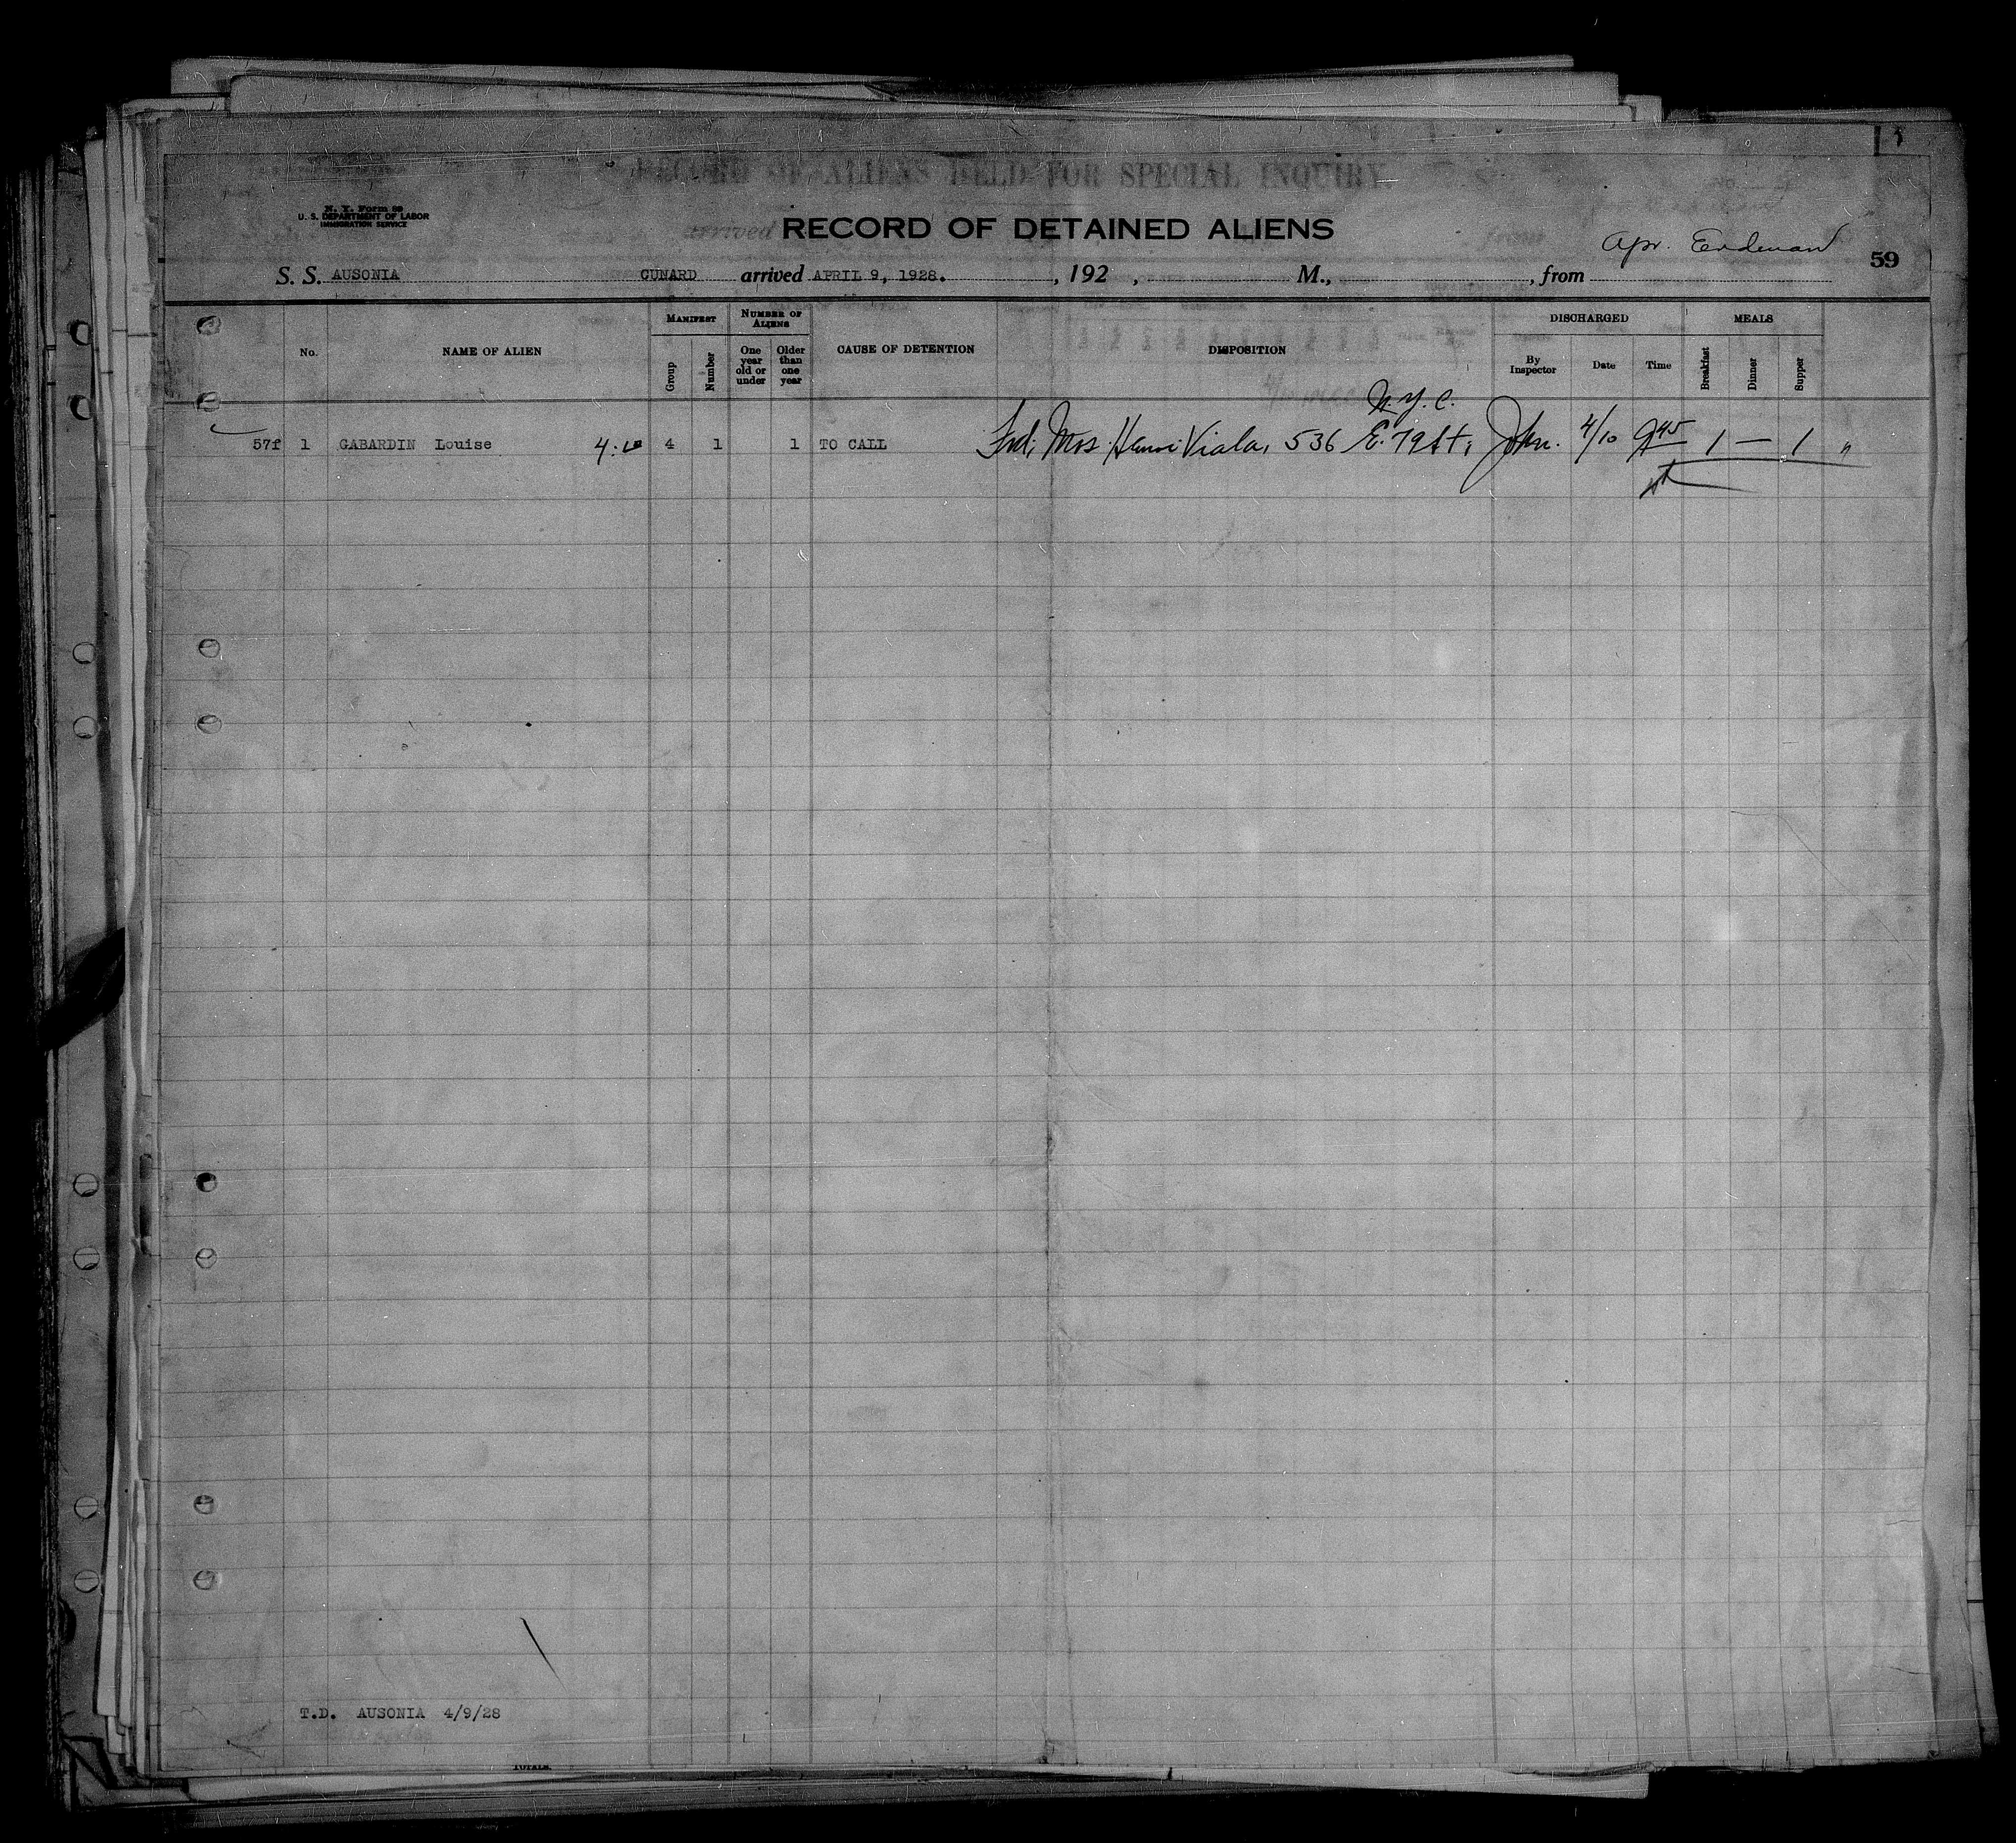 RECORD OF ALIENS HELD FOR SPECIAL INQUIRY.
N. Y. Form 89
U. S. DEPARTMENT OF LABOR
IMMIGRATION SERVICE
RECORD OF DETAINED ALIENS
Apr. Erdman
59
S. S. AUSONIA CUNARD arrived APRIL 9, 1928. , 192 , M., , from
No.
NAME OF ALIEN
MANIFEST
Group
Number
NUMBER OF ALIENS
One year old or under
Older than one year
CAUSE OF DETENTION
DISPOSITION
DISCHARGED
By Inspector
Date
Time
MEALS
Breakfast
Dinner
Supper
N.Y.C.
57f 1 GABARDIN Louise 4 1 1 TO CALL Frd. Mrs. Henri Viala, 536 E. 79 St. John. 4/10 9 45 1 — 1 "
T.D. AUSONIA 4/9/28
TOTALS.